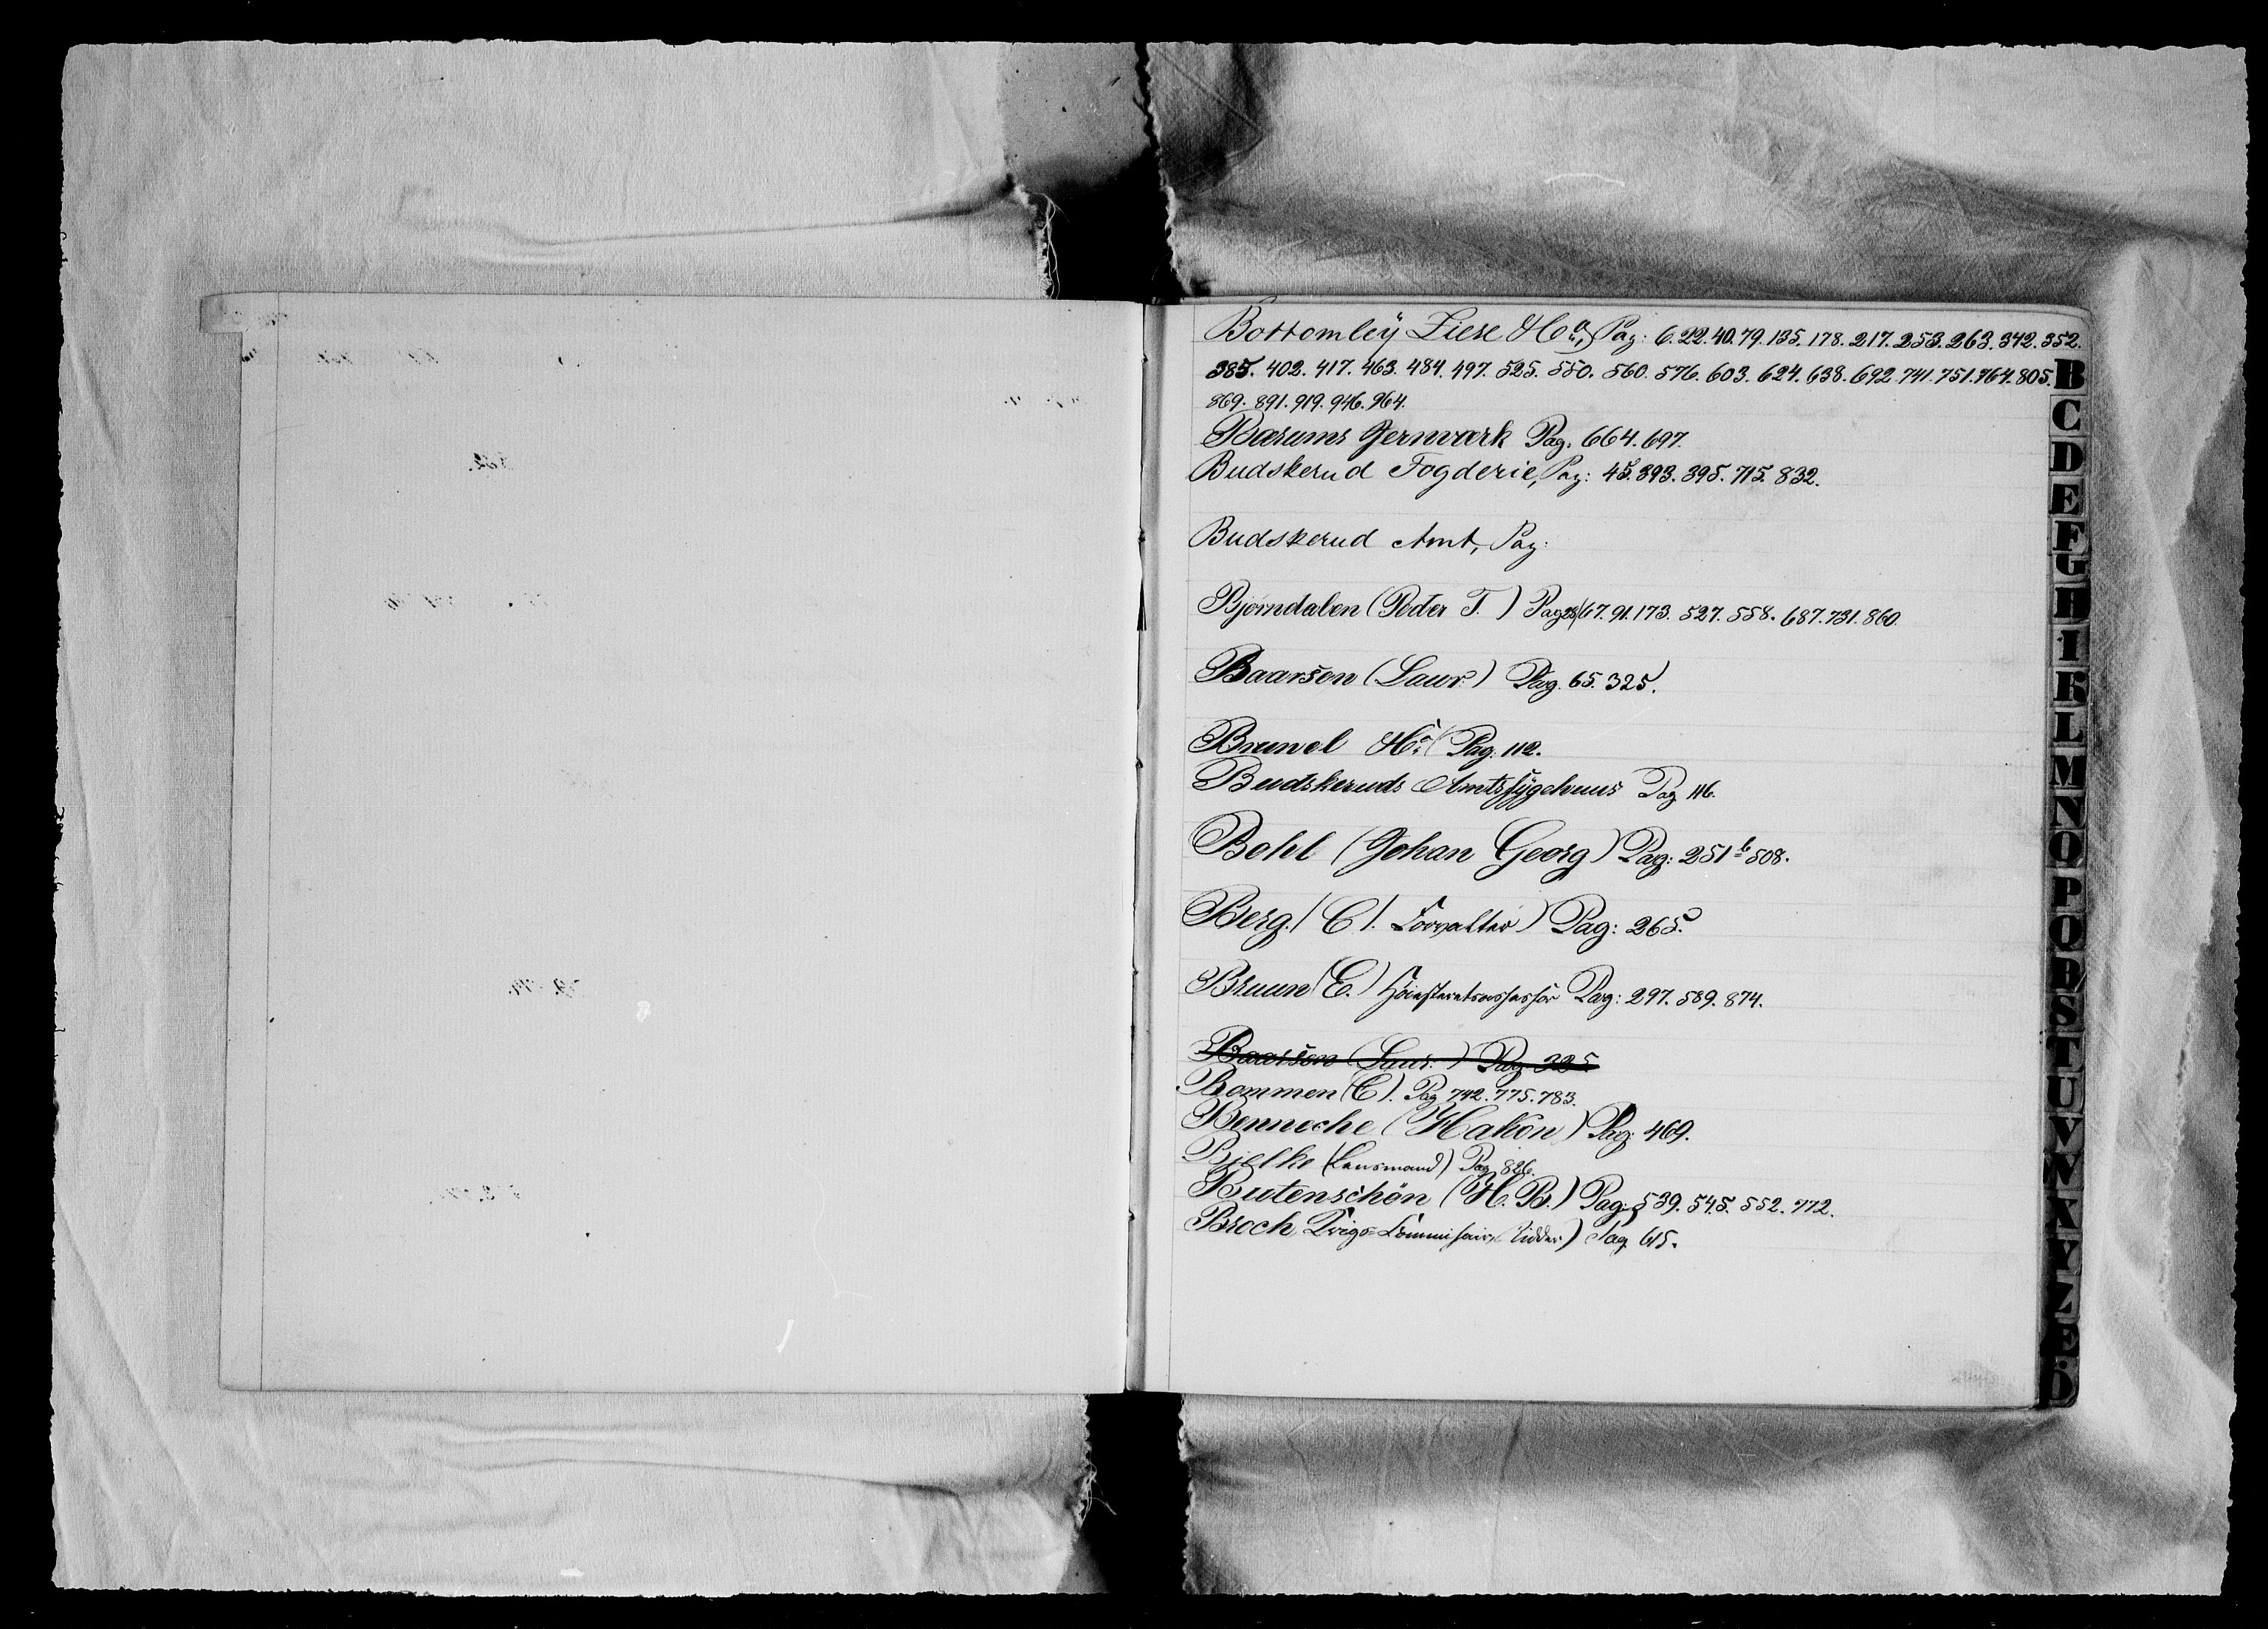 Bottomley Liese & Co, Pag: 6. 22. 40. 79. 135. 178. 217. 253. 263. 342. 352.
385. 402. 417. 463. 484. 497. 525. 550. 560. 576. 603. 624. 638. 692. 741. 751. 764. 805.
869. 891. 919. 946. 964.
Bærums Jernværk Pag. 664. 697.
Budskerud Fogderie, Pag: 45. 393. 395. 715. 832.
Budskerud Amt, Pag:
Bjørndalen (Peder T.) Pag 28/67. 91. 173. 527. 558. 687. 731. 860.
Baarsen (Laur:) Pag. 65. 325.
Brunel & Co: Pag: 112.
Budskeruds Amtssygehuus Pag 116.
Bohl (Johan Georg) Pag: 251b 508.
Berg / C /. Forvalter) Pag: 265.
Bruun (C.) Höiesteretsassessor Pag: 297. 589. 874.
Baarsen (Laur:) Pag 325
Bommen (C). Pag 742. 775. 783.
Benneche (Hakon) Pag: 469.
Bjelke (Lensmand) Pag 826.
Butenschön (H. B.) Pag: 539. 545. 552. 772.
Broch, Krigs-Commissair, Ridder) Pag 615.
B
C
D
E
F
G
H
I
K
L
M
N
O
P
Q
R
S
T
U
V
W
X
Y
Z
Æ
Ö